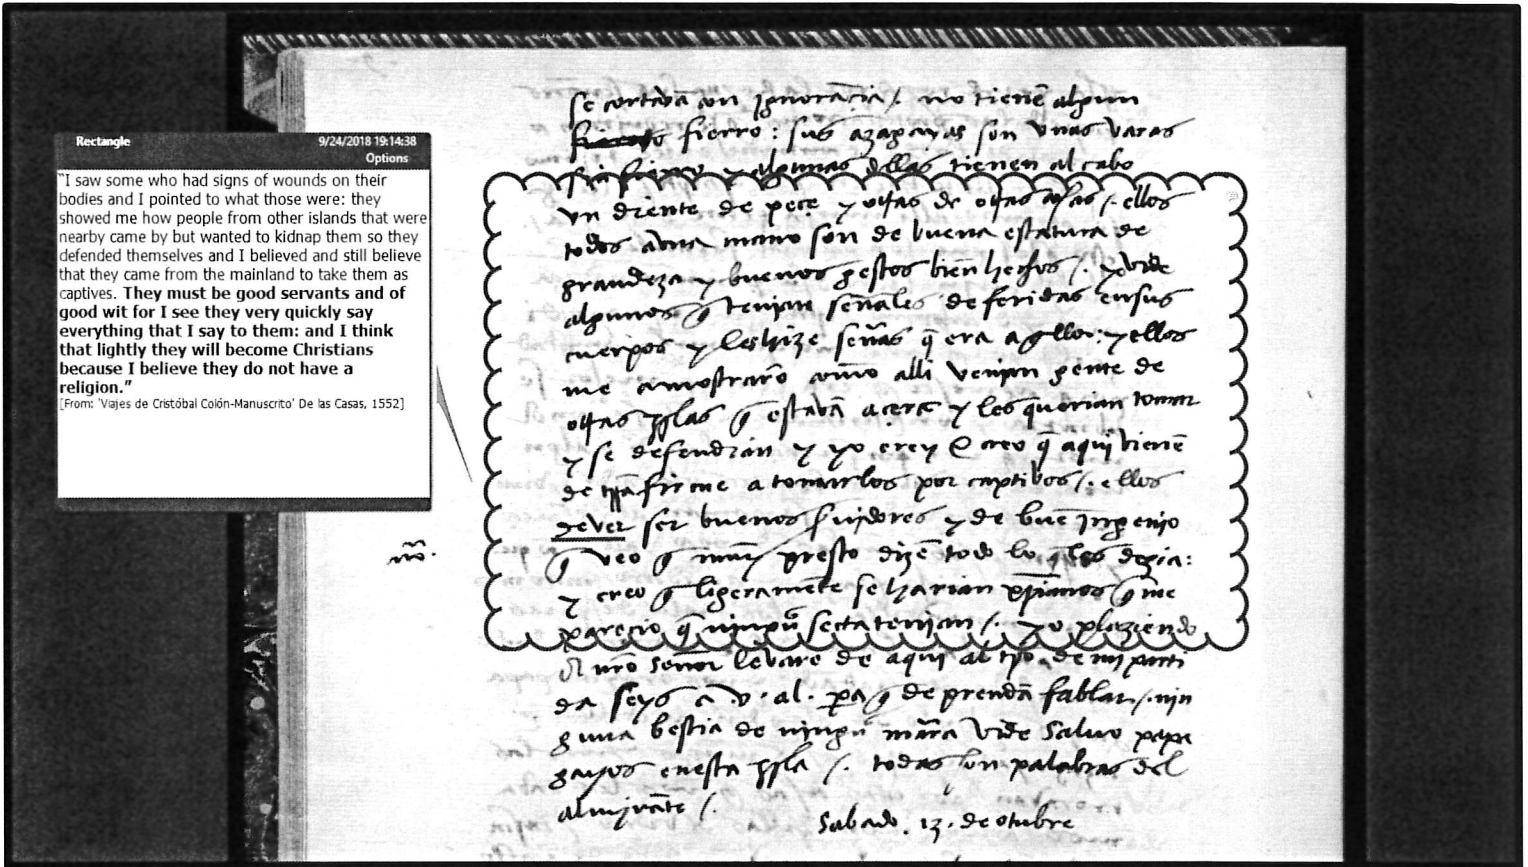 Rectangle 9/24/2018 19:14:38
Options
"I saw some who had signs of wounds on their
bodies and I pointed to what those were: they
showed me how people from other islands that were
nearby came by but wanted to kidnap them so they
defended themselves and I believed and still believe
that they came from the mainland to take them as
captives. They must be good servants and of
good wit for I see they very quickly say
everything that I say to them: and I think
that lightly they will become Christians
because I believe they do not have a
religion."
[From: 'Viajes de Cristóbal Colón-Manuscrito' De las Casas, 1552]
se cortavā con ignorāçia /. no tienē algun
fierro : sus azagayas son unas varas
sin fierro y algunas dellas tienen al cabo
un diente de peçe y otras de otras cosas /. ellos
todos a una mano son de buena estatura de
grandeza y buenos gestos bien hechos /. yo vide
algunos q̄ tenian señales de feridas en sus
cuerpos y les hize señas q̄ era aq̄llo : y ellos
me amostrarō como alli venian gente de
otras yslas q̄ estavā açerca y les querian tomar
y se defendian y yo crey e creo q̄ aqui vienē
de trrā firme a tomarlos por captibos /. ellos
dever ser buenos suidores y de buē ingenio
q̄ veo q̄ muy presto dizē todo lo q̄ les dezia :
y creo q̄ ligeramēte se harian xp̄ianos q̄ me
parecio q̄ ningua secta tenian /. yo plaziendo
a nrō señor levare de aqui al tpō de mi parti
da seys a .v. al. pa q̄ deprendā fablar /. nin
guna bestia de ninguа manrā vide salvo papa
gayos en esta ysla /. todas son palabras del
almirāte /.
Sabado . 13 . de otubre